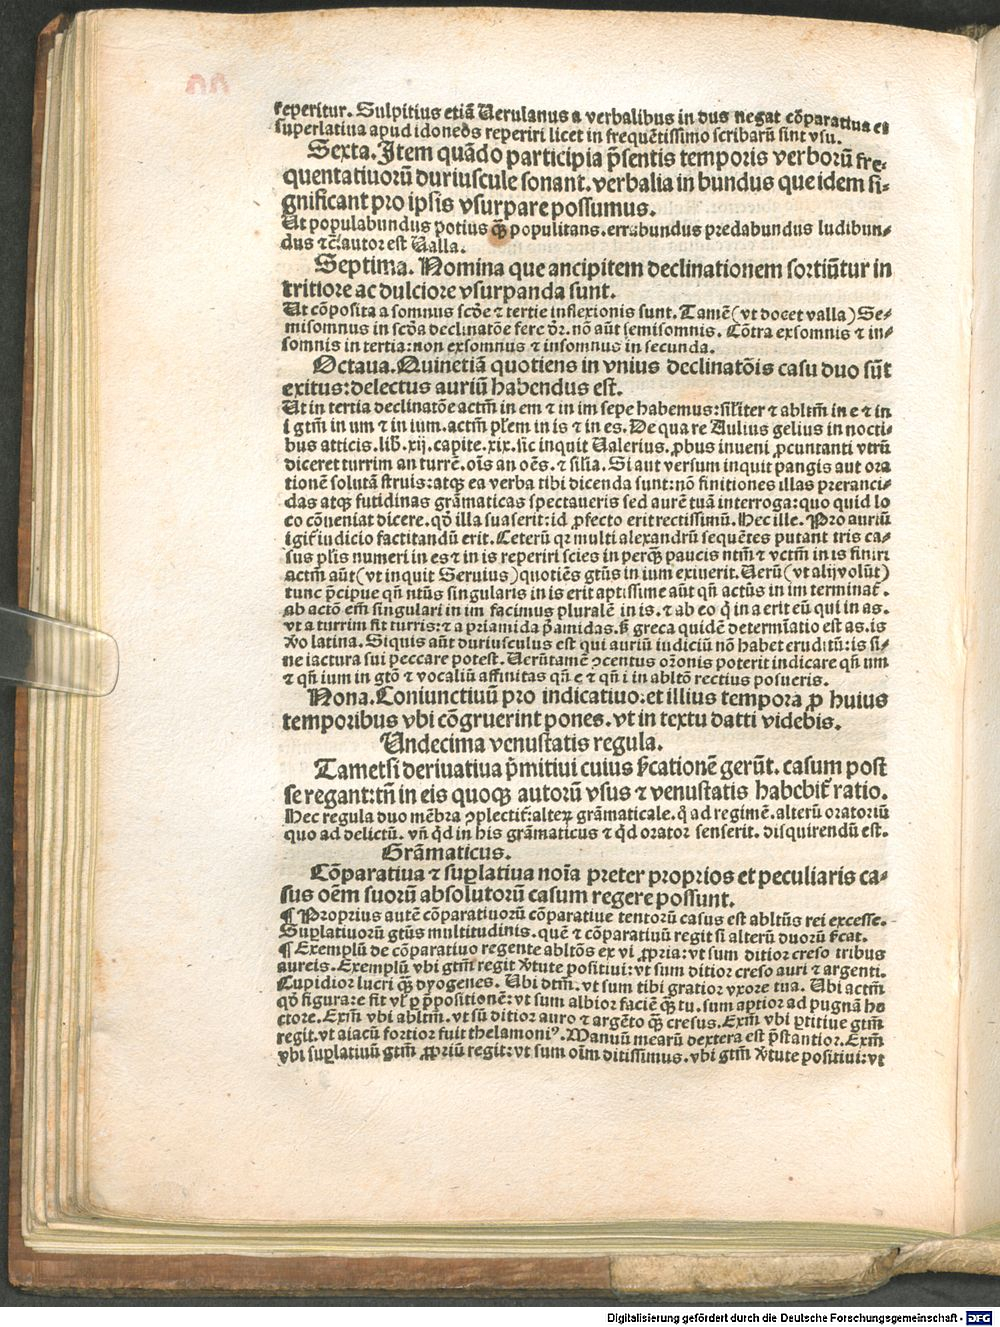 reperitur. Sulpitius etiã Uerulanus a verbalibus in dus negat cõparatiua et
superlatiua apud idoneos reperiri licet in frequẽtissimo scribarũ sint vsu.
Sexta. Item quãdo participia p̃sentis temporis verborũ fre-
quentatiuorũ duriuscule sonant. verbalia in bundus que idem si-
gnificant pro ipsis vsurpare possumus.
Ut populabundus potius q̃ꝫ populitans. errabundus predabundus ludibun-
dus ⁊c̃. autor est Ualla.
Septima. Nomina que ancipitem declinationem sortiũtur in
tritiore ac dulciore vsurpanda sunt.
Ut cõposita a somnus scðe ⁊ tertie inflexionis sunt. Tamẽ (vt docet valla) Se-
misomnus in scða declinatõe fere ðr. nõ aũt semisomnis. Cõtra exsomnis ⁊ in-
somnis in tertia: non exsomnus ⁊ insomnus in secunda.
Octaua. Quinetiã quotiens in vnius declinatõis casu duo sũt
exitus: delectus auriũ habendus est.
Ut in tertia declinatõe actm̃ in em ⁊ in im sepe habemus: sil̃iter ⁊ abltm̃ in e ⁊ in
i gtm̃ in um ⁊ in ium. actm̃ pl̃em in is ⁊ in es. De qua re Aulius gelius in nocti-
bus atticis. lib̃. xij. capite. xix. sic inquit Ualerius. ꝓbus inueni ꝑcuntanti vtrũ
diceret turrim an turrẽ. oĩs an oẽs. ⁊ sil̃ia. Si aut versum inquit pangis aut ora
tionẽ solutã struis: atqꝫ ea verba tibi dicenda sunt: nõ finitiones illas preranci-
das atqꝫ futidinas grãmaticas spectaueris sed aurẽ tuã interroga: quo quid lo
co cõueniat dicere. qð illa suaserit: id ꝓfecto erit rectissimũ. Hec ille. Pro auriũ
igit̃ iudicio factitandũ erit. Ceterũ qꝛ multi alexandrũ sequẽtes putant tris ca-
sus pl̃is numeri in es ⁊ in is reperiri scies in perq̃ꝫ paucis ntm̃ ⁊ vctm̃ in is finiri
actm̃ aũt (vt inquit Seruius) quotiẽs gtũs in ium exiuerit. Uerũ (vt alij volũt)
tunc p̃cipue qñ ntũs singularis in is erit aptissime aũt qñ actũs in im terminat̃.
ab actõ em̃ singulari in im facimus pluralẽ in is. ⁊ ab eo q̃ in a erit eũ qui in as.
vt a turrim fit turris: ⁊ a priamida p̃amidas. sꝫ greca quidẽ determĩatio est as. is
ꝟo latina. Siquis aũt duriusculus est qui auriũ iudiciũ nõ habet eruditũ: is si-
ne iactura sui peccare potest. Uerũtamẽ ↄcentus orõnis poterit indicare qñ um
⁊ qñ ium in gtõ ⁊ vocaliũ affinitas qñ e ⁊ qñ i in abltõ rectius posueris.
Nona. Coniunctiuũ pro indicatiuo: et illius tempora ꝓ huius
temporibus vbi cõgruerint pones. vt in textu datti videbis.
Undecima venustatis regula.
Tametsi deriuatiua p̃mitiui cuius sꝫcationẽ gerũt. casum post
se regant: tñ in eis quoqꝫ autorũ vsus ⁊ venustatis habebit̃ ratio.
Hec regula duo mẽbra ↄplectit̃: alterꝫ grãmaticale. q̃ ad regimẽ. alterũ oratoriũ
quo ad delictũ. vñ q̃d in his grãmaticus ⁊ q̃d orator senserit. disquirendũ est.
Grãmaticus.
Cõparatiua ⁊ sup̱latiua noĩa preter proprios et peculiaris ca-
sus oẽm suorũ absolutorũ casum regere possunt.
¶ Proprius autẽ cõparatiuorũ cõparatiue tentorũ casus est abltũs rei excesse.
Sup̱latiuorũ gtũs multitudinis. quẽ ⁊ cõparatiuũ regit si alterũ duorũ sꝫcat.
¶ Exemplũ de cõparatiuo regente abltõs ex vi ꝓpria: vt sum ditior creso tribus
aureis. Exemplũ vbi gtm̃ regit ꝟtute positiui: vt sum ditior creso auri ⁊ argenti.
Cupidior lucri q̃ꝫ dyogenes. Ubi dtm̃. vt sum tibi gratior vxore tua. Ubi actm̃
qð figura: e fit vl̃ ꝑ p̃positionẽ: vt sum albior faciẽ q̃ꝫ tu. sum aptior ad pugnã he
ctore. Exm̃ vbi abltm̃. vt sũ ditior auro ⁊ argẽto q̃ꝫ cresus. Exm̃ vbi ꝑtitiue gtm̃
regit. vt aiacũ fortior fuit thelamoniꝰ. Manuũ mearũ dextera est p̃stantior. Exm̃
vbi sup̱latiuũ gtm̃ ꝓpriũ regit: vt sum oĩm ditissimus. vbi gtm̃ ꝟtute positiui: vt
Digitalisierung gefördert durch die Deutsche Forschungsgemeinschaft - DFG